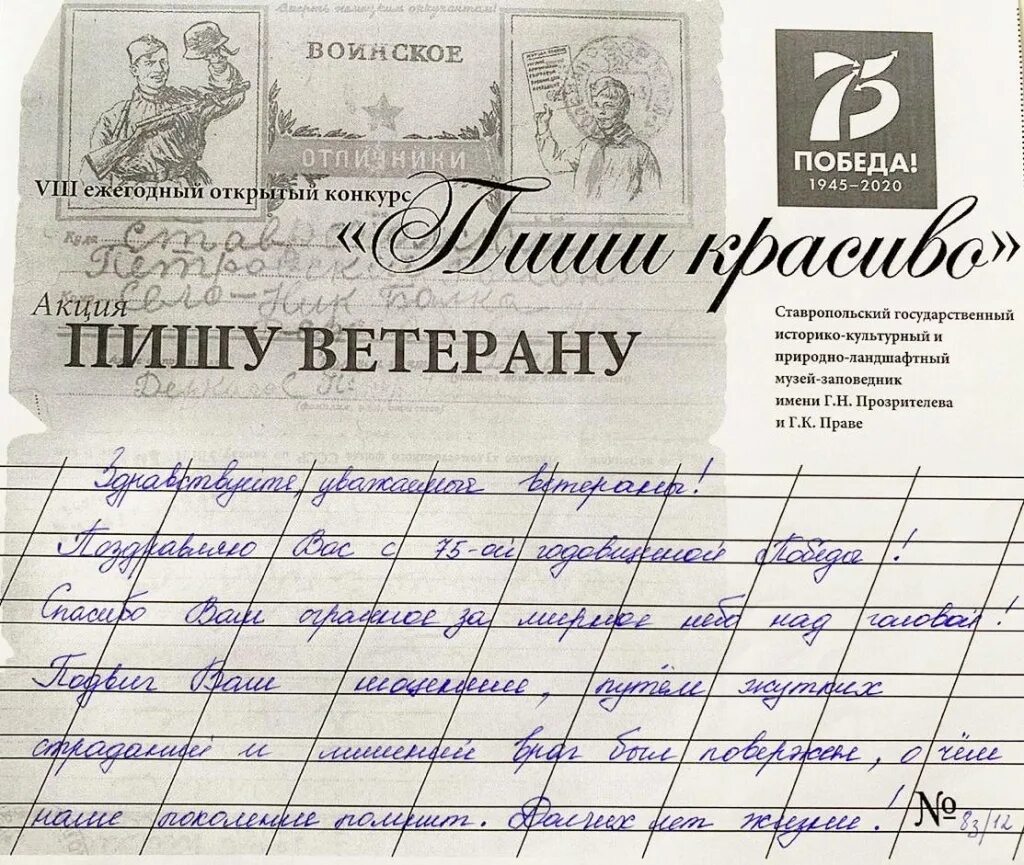 Смерть немецким оккупантам!
ВОИНСКОЕ
ОТЛИЧНИКИ
75
ПОБЕДА!
1945–2020
VIII ежегодный открытый конкурс
«Пиши красиво»
Куда
Петровский
Село-Ник Балка
Акция
ПИШУ ВЕТЕРАНУ
Ставропольский государственный
историко-культурный и
природно-ландшафтный
музей-заповедник
имени Г.Н. Прозрителева
и Г.К. Праве
Здравствуйте, уважаемые ветераны!
Поздравляю Вас с 75-ой годовщиной Победы!
Спасибо Вам огромное за мирное небо над головой!
Подвиг Ваш неоценим, путём жутких
страданий и лишений враг был повержен, о чём
наше поколение помнит. Долгих лет жизни!
№ 83/12